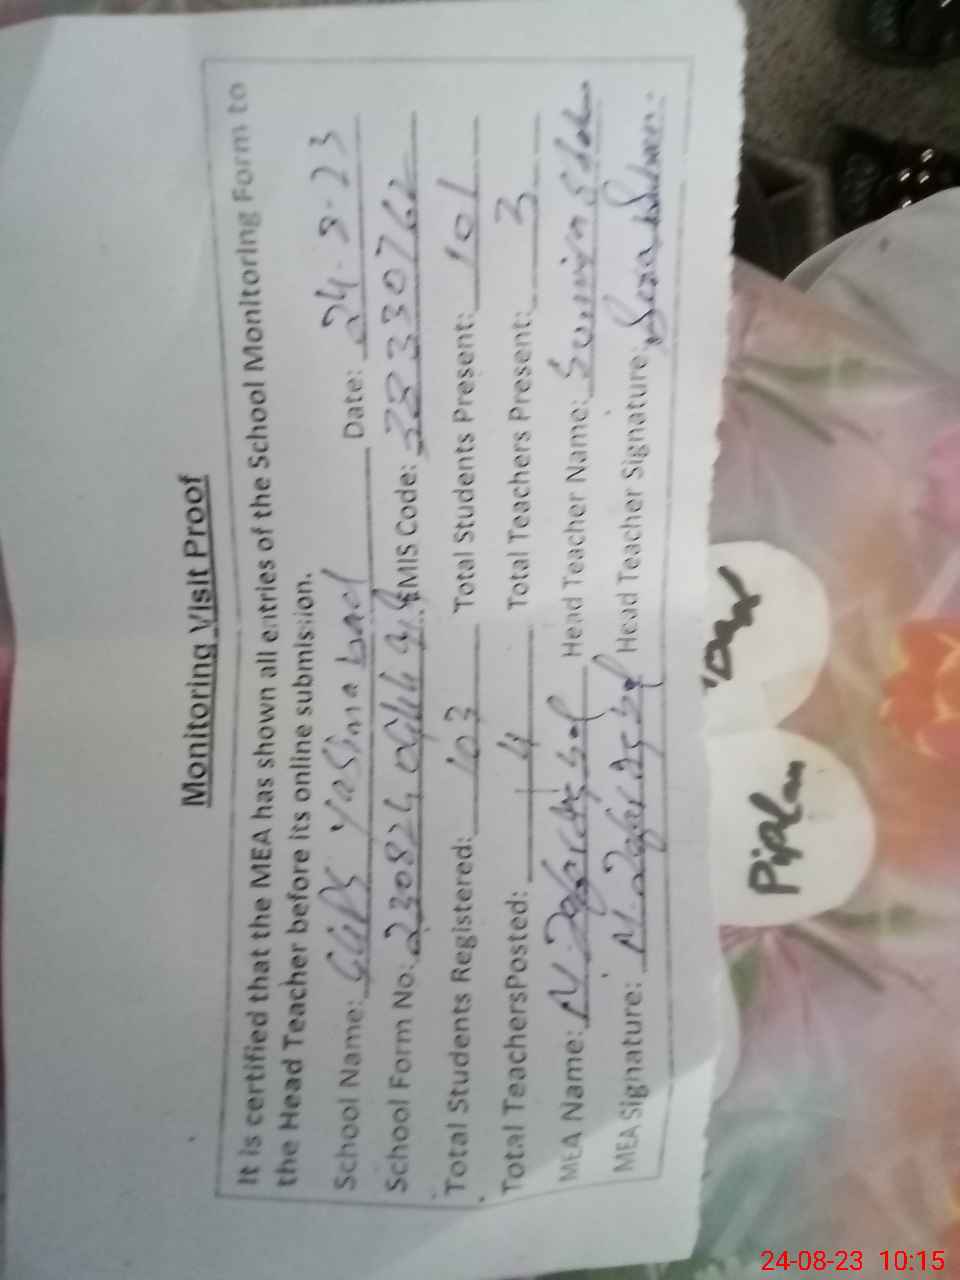 Monitoring Visit Proof
It is certified that the MEA has shown all entries of the School Monitoring Form to
the Head Teacher before its online submission.
School Name: GGPS Yasinabad Date: 24-8-23
School Form No: 230824 EMIS Code: 38330762
Total Students Registered: 103 Total Students Present: 101
Total TeachersPosted: 4 Total Teachers Present: 3
MEA Name: M. Zafar Iqbal Head Teacher Name:
MEA Signature: M. Zafar Iqbal Head Teacher Signature:
Piplan
24-08-23 10:15